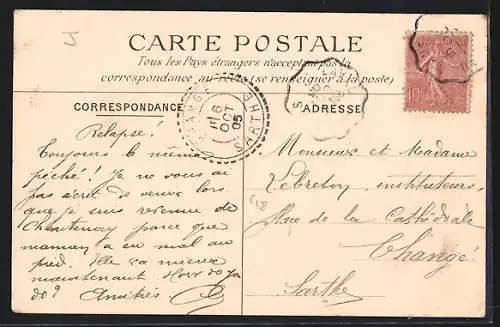 CARTE POSTALE
Tous les Pays étrangers n'acceptent pas la
correspondance au (se renseigner à la poste)
CORRESPONDANCE
ADRESSE
CHANGÉ
6
OCT
05
SARTHE
10
Relapse!
Toujours le même
péché! Je ne vous ai
pas écrit de venue lors
que je suis revenue de
Chantenay parce que
maman a eu mal au
pied. Elle va mieux
maintenant
do? Amitiés
Monsieur et Madame
Lebreton, instituteurs,
Place de la Cathédrale
Changé
Sarthe